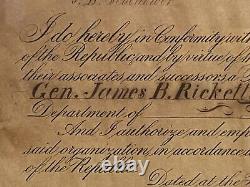 I do hereby, in Conformity with
of the Republic, and by virtue of
their associates and successors a
Gen. James B. Rickett
Department of
And I authoroze and emp
said organization, in accordance
of the Repub
Dated at the